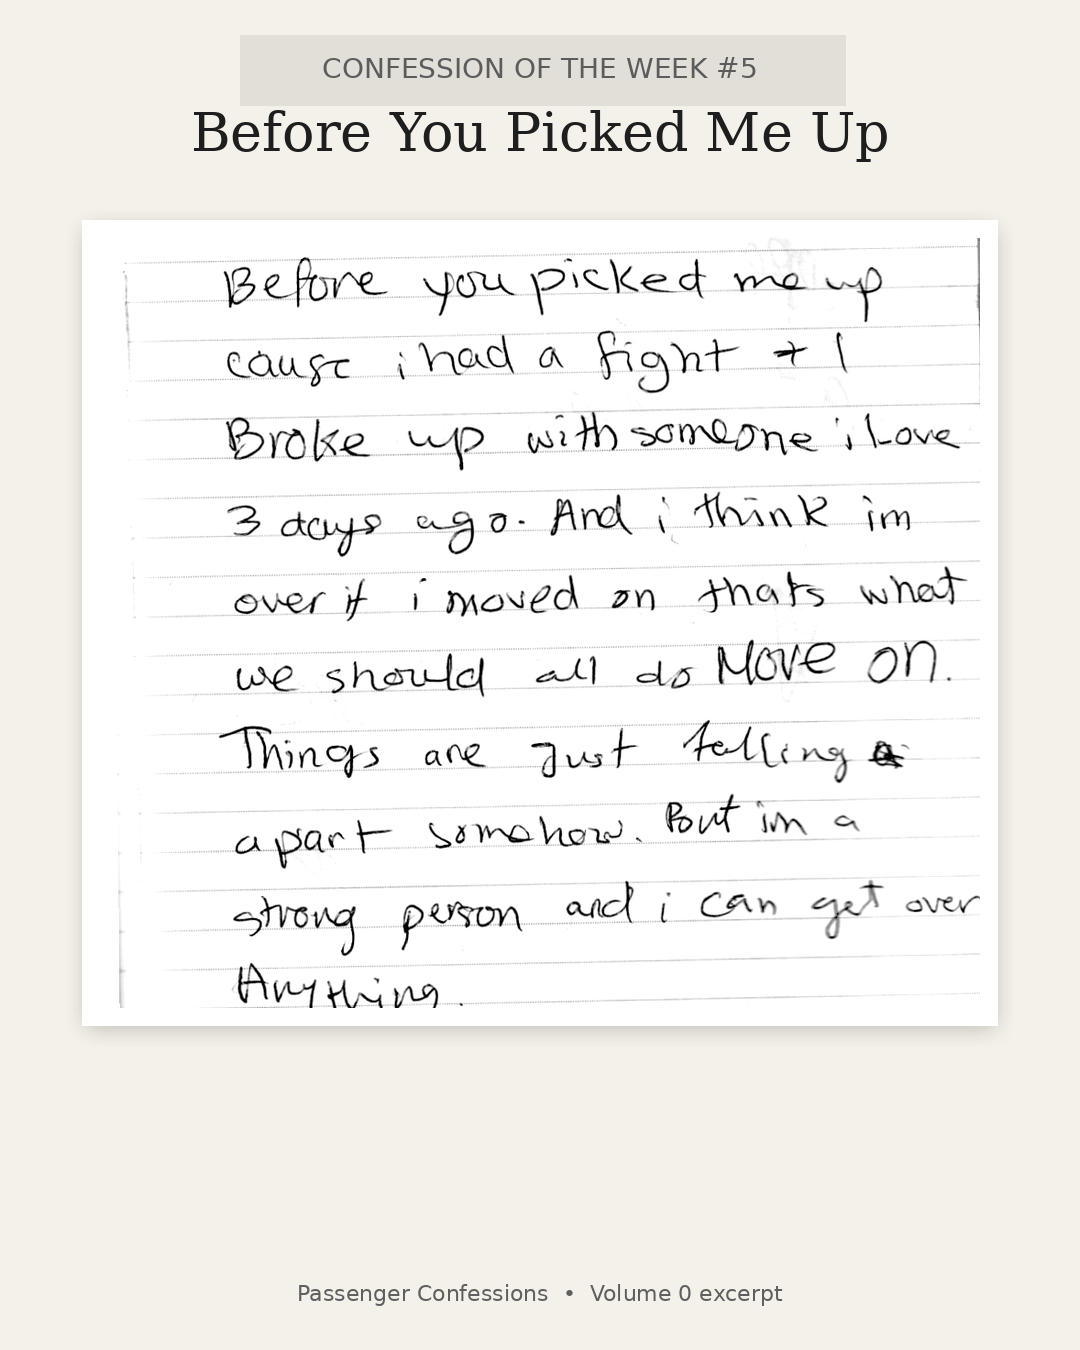 CONFESSION OF THE WEEK #5
Before You Picked Me Up
Before you picked me up
cause i had a fight + I
Broke up with someone i Love
3 days ago. And i think im
over it i moved on thats what
we should all do Move on.
Things are Just falling
apart somehow. But im a
strong person and i can get over
Anything.
Passenger Confessions • Volume 0 excerpt